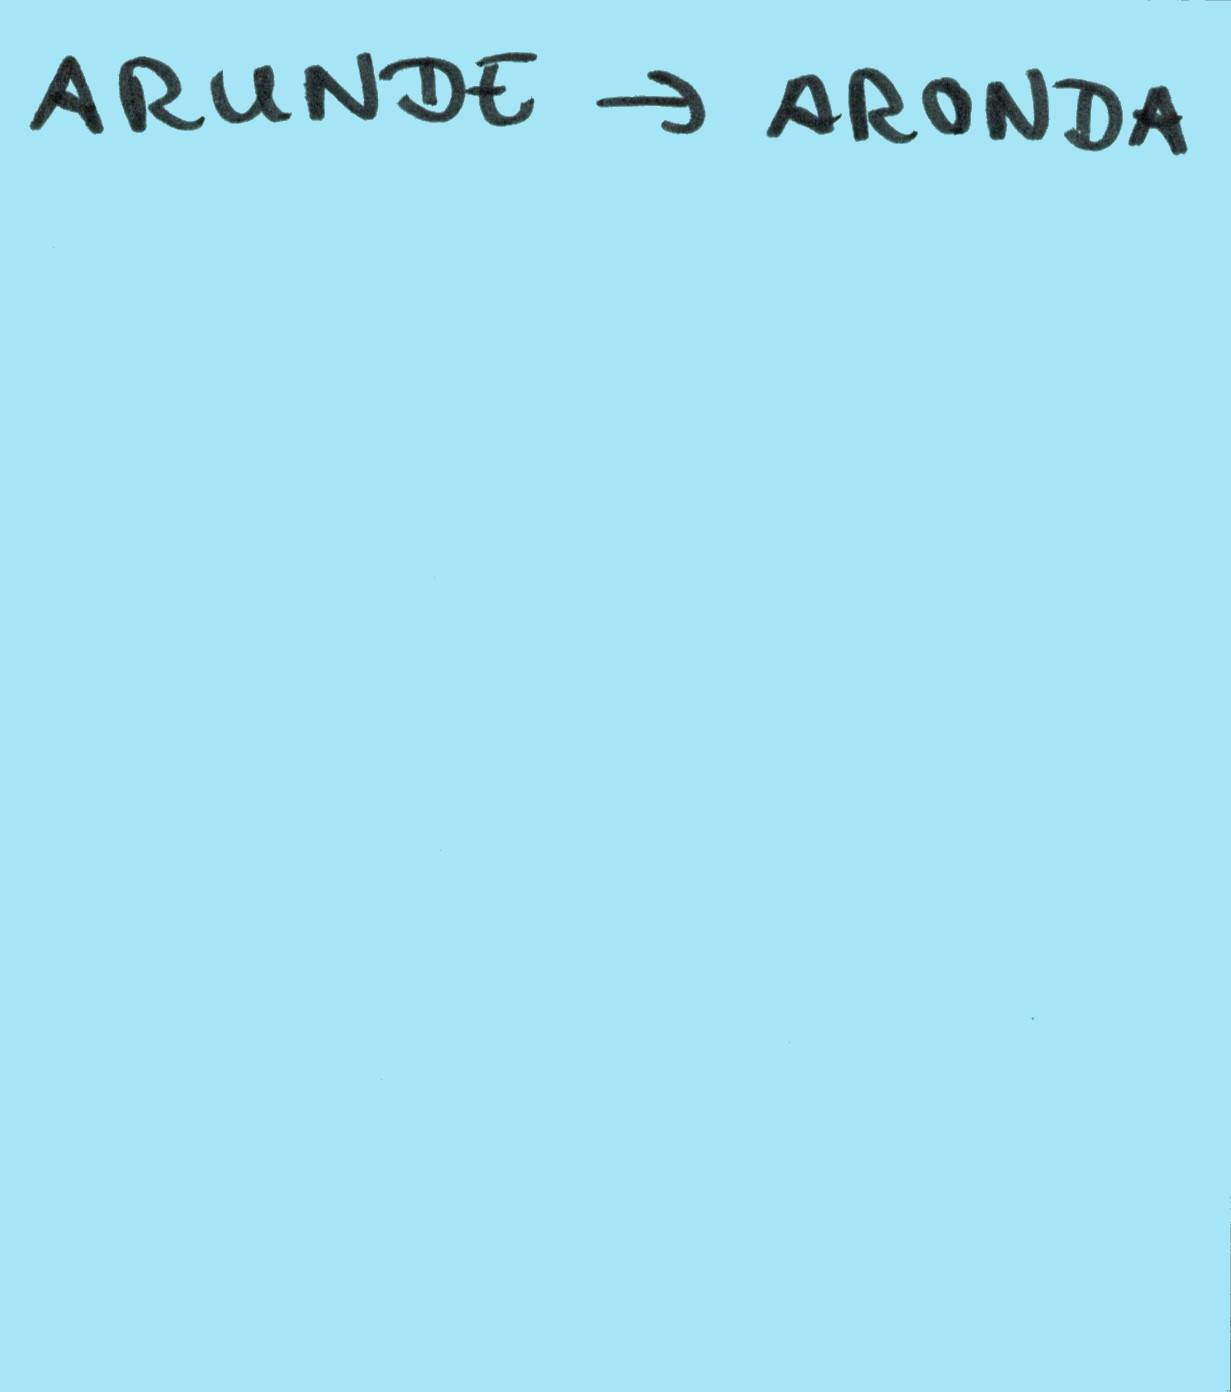 ARUNDE → ARONDA